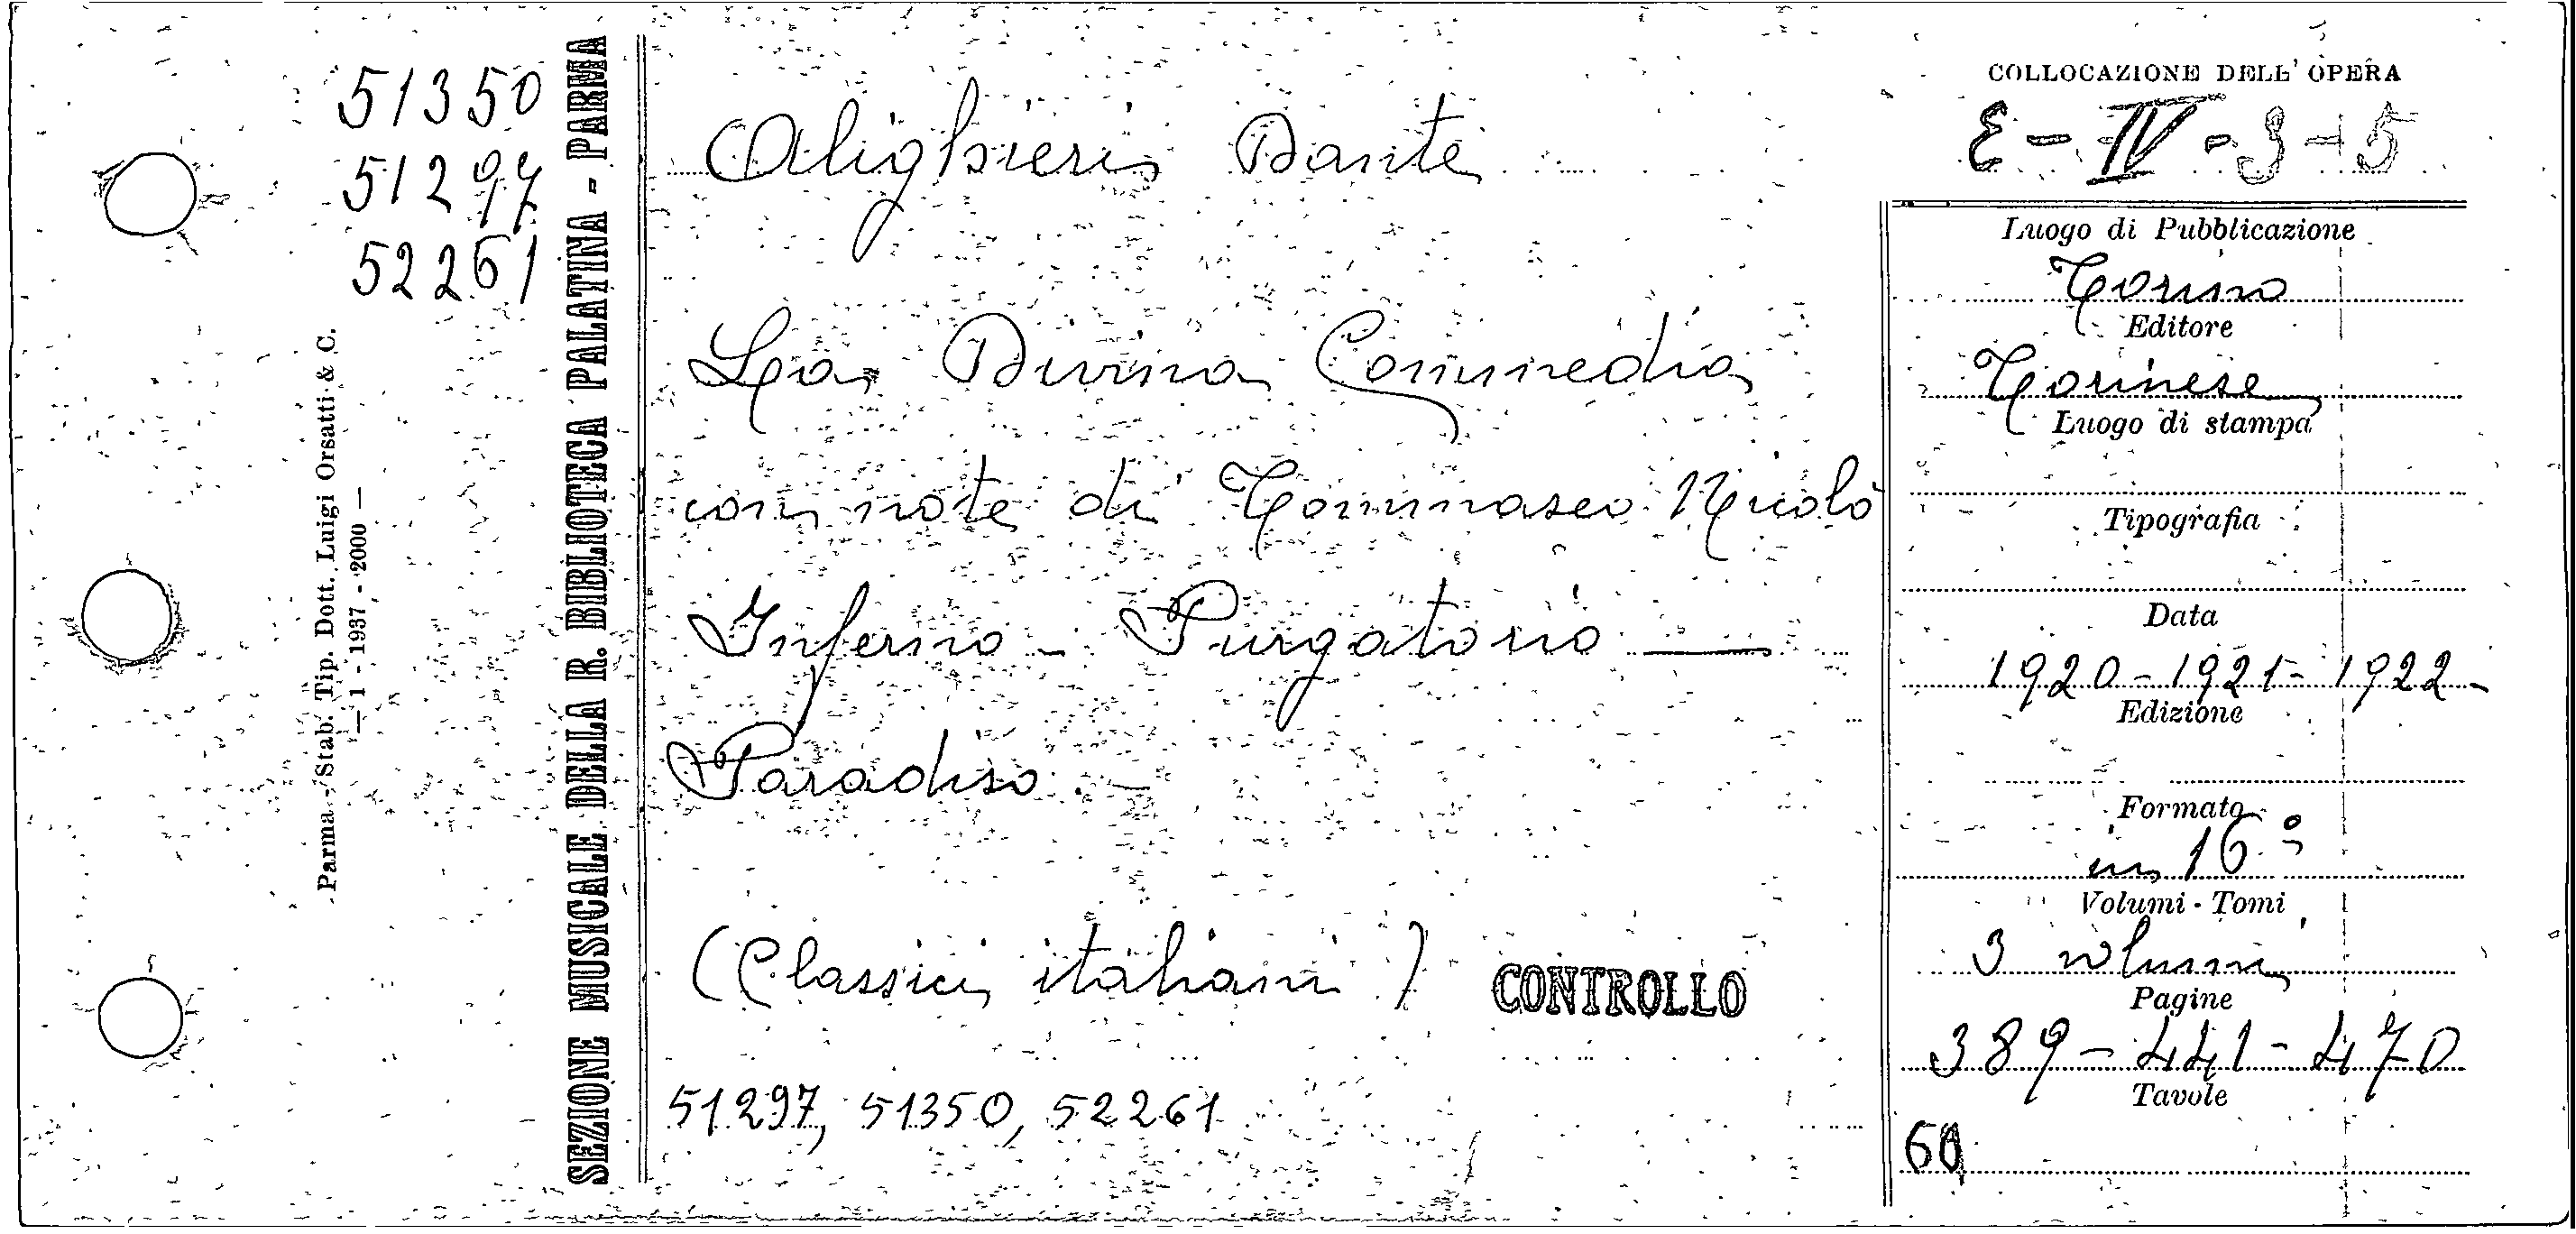 51350
51297
52261
Parma - Stab. Tip. Dott. Luigi Orsatti & C.
— 1 - 1937 - 2000 —
SEZIONE MUSICALE DELLA R. BIBLIOTECA PALATINA - PARMA
Alighieri Dante
La Divina Commedia
con note di Tommaseo Nicolò
Inferno - Purgatorio —
Paradiso. —
(Classici italiani)
CONTROLLO
51297, 51350, 52261
COLLOCAZIONE DELL'OPERA
E - IV - 3 - 5
Luogo di Pubblicazione
Torino
Editore
Torinese
Luogo di stampa
Tipografia
Data
1920 - 1921 - 1922 -
Edizione
Formato
in 16º
Volumi - Tomi
3 volumi
Pagine
389 - 441 - 470
Tavole